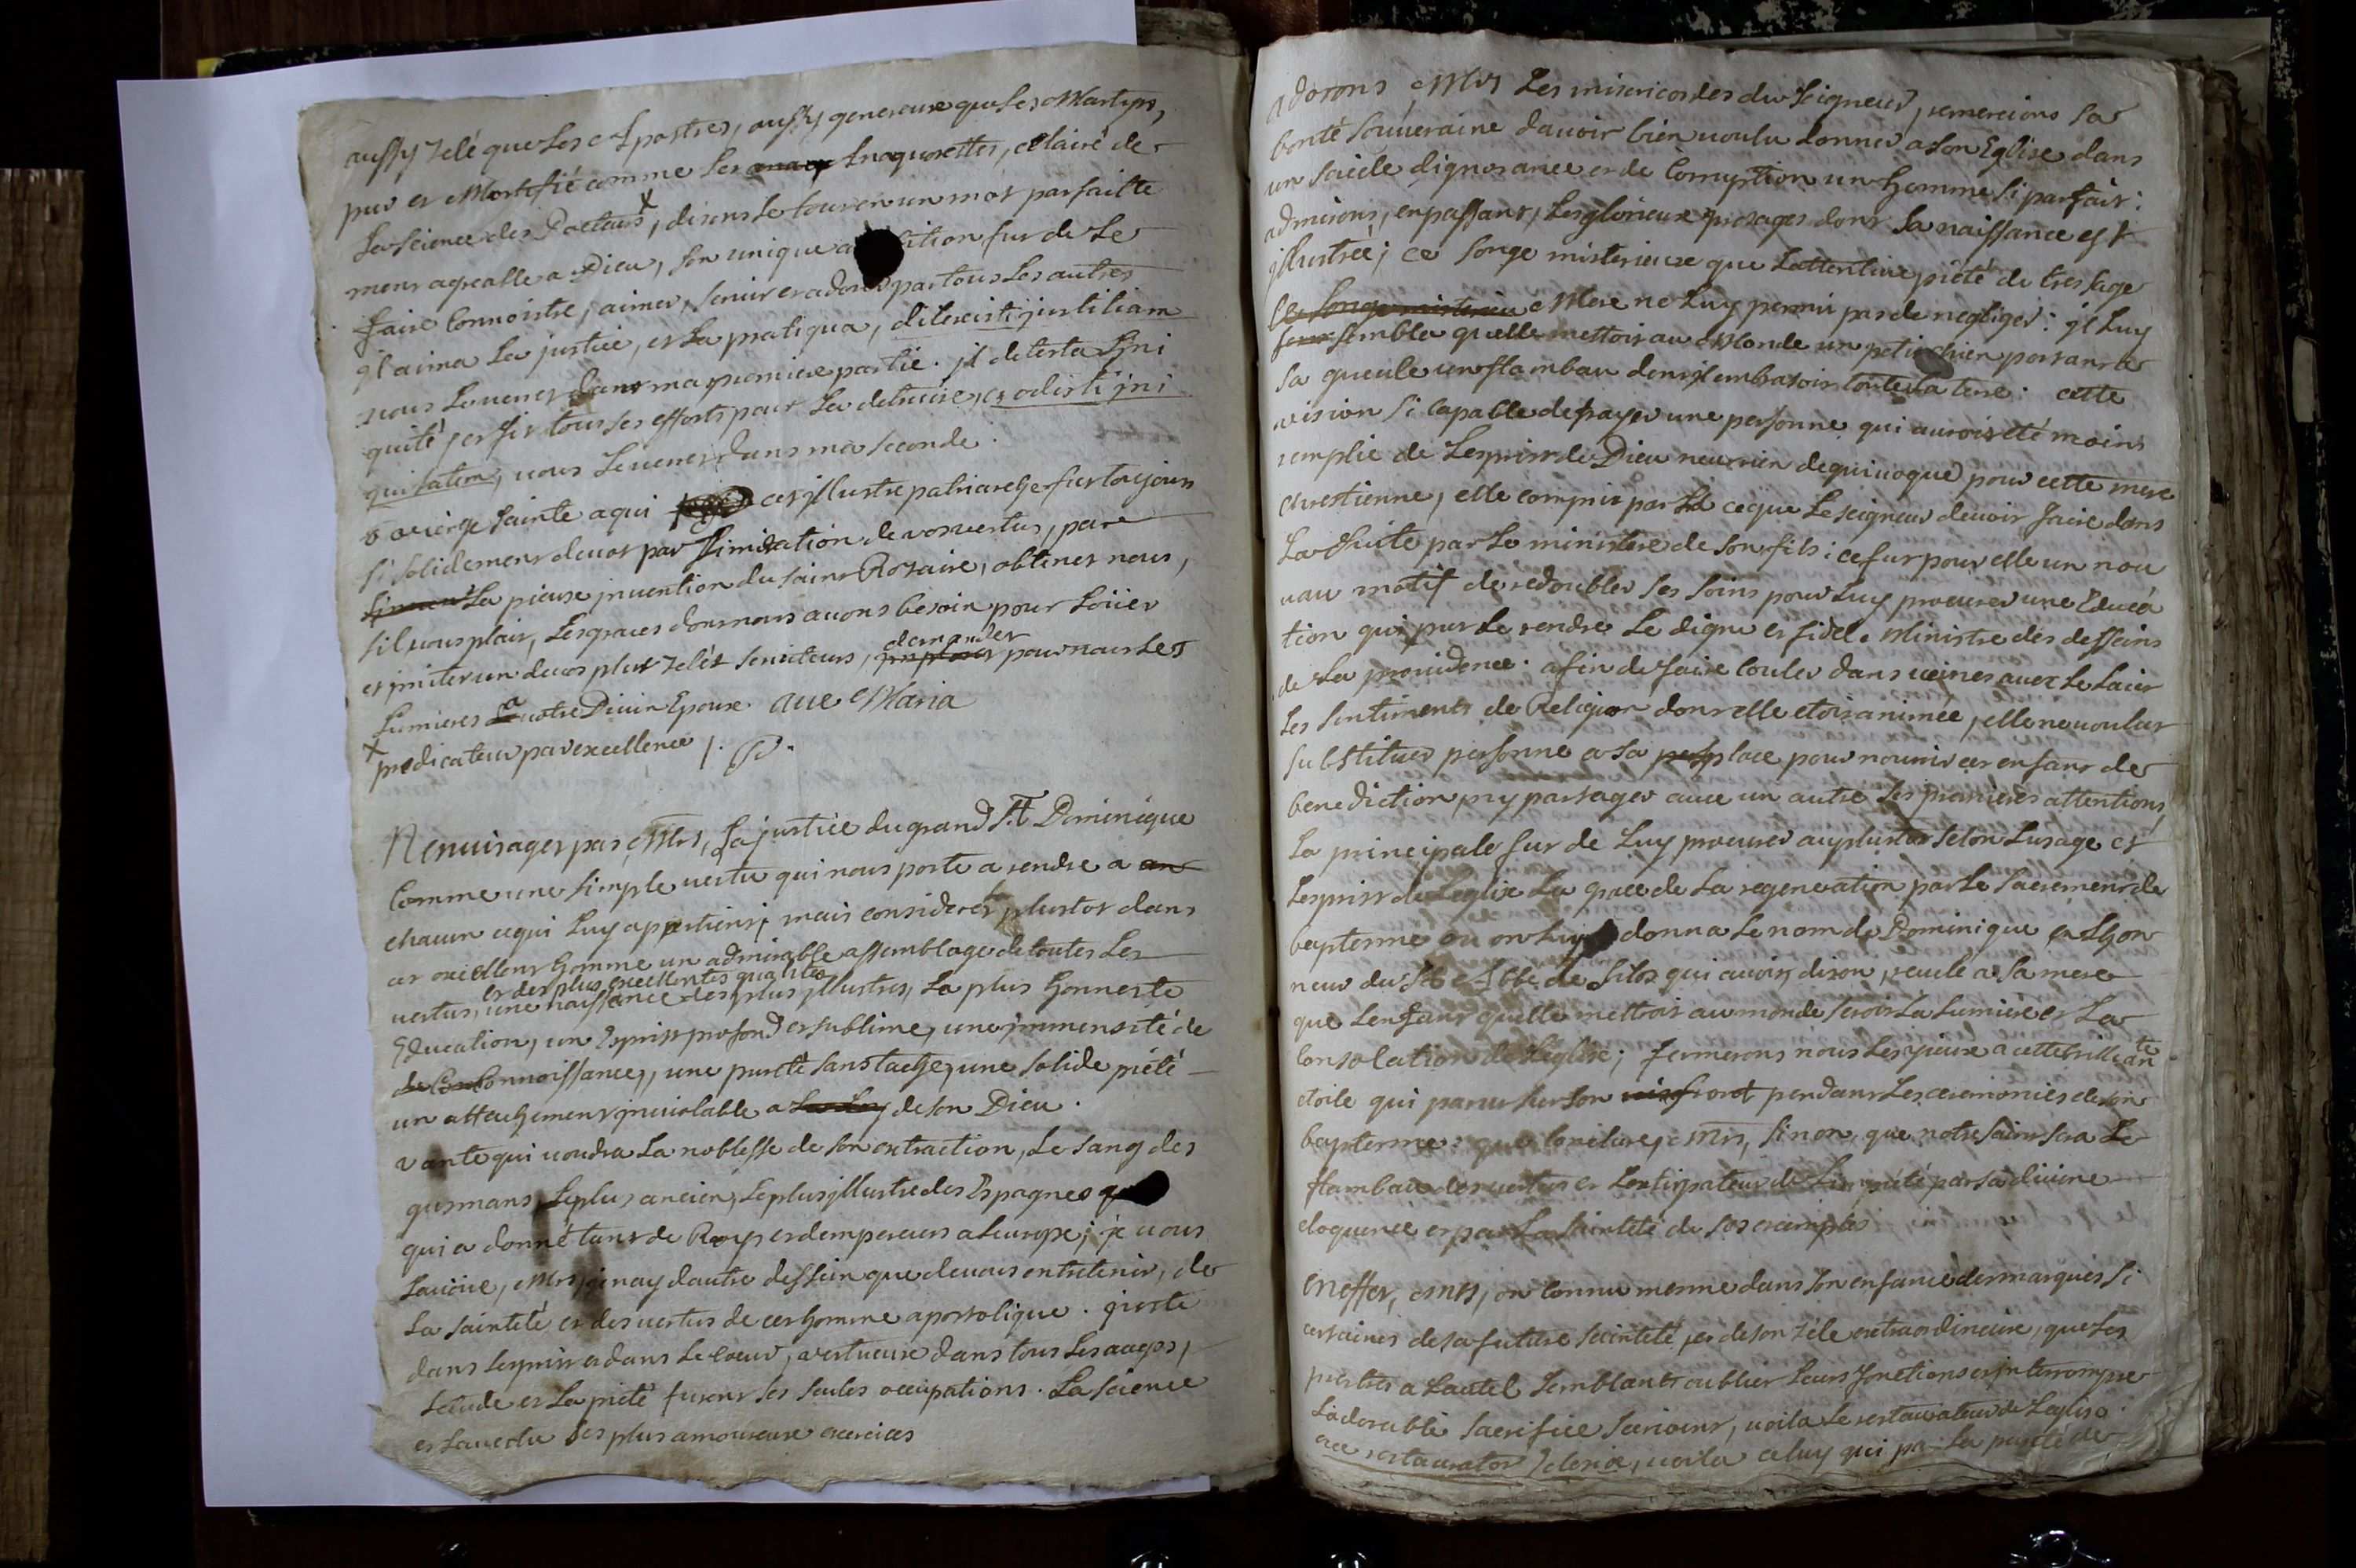 aussy zelé que les Apostres, aussy genereux que les Martyrs,
pur et Mortifié comme les Anaquorettes, eclairé de
la science des Docteurs, disons le tout en un mot parfaitte
ment agreable a Dieu, son unique a ition fut de le
faire connoistre, aimer, servir et adorer par tous les autres
jl aima la justice, et la pratiqua, dilexisti justitiam
vous le verrez dans ma premiere partie. jl detesta Lini
quité, et fit tous ses efforts pour la detruire, et odisti ini
quitatem, vous le verrez dans ma seconde.
o vierge sainte a qui cet jllustre patriarche fut toujours
si solidement devot par Limitation de vos vertus, par
la pieuse jnvention du saint Rosaire, obtenez nous,
sil vous plait, les graces dont nous avons besoin pour loüer
et jmiter un de vos plus zelés serviteurs, demander pour nous les
lumieres a votre Divin Epoux. ave Maria
x predicateur par excellence
N'envisagez pas, Mrs, la justice du grand St Dominique
Comme une simple vertu qui nous porte a rendre a
chacun ce qui luy appartient, mais considerez plustot dans
cet excellent homme un admirable assemblage de toutes les
et des plus excellentes qualités
vertus, une naissance des plus jllustres, la plus honneste
Education, un Esprit profond et sublime, une jmmensité de
Connoissances, une pureté sans tache, une solide piété
un attachement jnviolable a de son Dieu.
vante qui voudra la noblesse de son extraction, le sang des
gusmans, le plus ancien, le plus jllustre des Espagnes
qui a donné tant de Roys et dempereurs a Leurope; je vous
lavoüe, Mrs, je nay dautre dessein que de vous entretenir, de
la sainteté et des vertus de cet homme apostolique. juste
dans lesprit et dans le coeur, vertueux dans tous les aages,
letude et la pieté furent ses seules occupations. La science
et la vertu ses plus amoureux exercices
adorons, Mrs, les misericordes du seigneur, remercions sa
bonté souveraine davoir bien voulu donner a son Eglise dans
un siecle dignorance et de corruption un homme si parfait:
admirons, en passant, les glorieux presages dont sa naissance est
jllustrée; ce songe misterieux que lattentive pieté de tres sage
Mere ne luy permit pas de negliger: jl luy
sembla quelle mettoit au Monde un petit chien portant a
sa gueule un flambau dont jl embrasoit toute la terre: cette
vision si capable defrayer une personne qui auroit eté moins
remplie de Lesprit de Dieu neut rien dequivoque pour cette mere
chrestienne, elle comprit par la ce que le seigneur devoit faire dans
la suite par le ministere de son fils: ce fut pour elle un nou
vau motif de redoubler ses soins pour luy procurer une Educa
tion qui put le rendre le digne et fidele Ministre des desseins
de la providence. afin de faire couler dans veines avec le lait
les sentiments de Religion dont elle etoit animée, elle ne voulut
substituer personne a sa place pour nourrir cet enfant de
benediction, ny partager avec un autre ses premieres attentions,
la principale fut de luy procurer au plustot selon lusage et
Lesprit de leglise la grace de la regeneration par le sacrement de
baptesme ou on luy donna le nom de Dominique en lhon
neur du St Abbé de Silos qui avoit, diton, revelé a sa mere
que lenfant quelle mettroit au monde seroit la lumiere et la
Consolation de Leglise; fermerons nous les yeux a cette brillante
etoile qui parut sur son front pendant les ceremonies de son
baptesme: que conclure, Mrs, sinon, que notre saint sera le
flambau des vertus et lextirpateur de Limpieté par sa divine
eloquence et par la sainteté de ses exemples
En effet, Mrs, on connut mesme dans son enfance des marques si
certaines de sa future sainteté, et de son zéle extraordinaire, que les
prestres a Lautel semblants oublier leurs fonctions et jnterrompre
Ladorable sacrifice secrioient, voila le restaurateur de Leglise.
ecce restaurator Ecclesiae, voila celuy qui par la pureté de